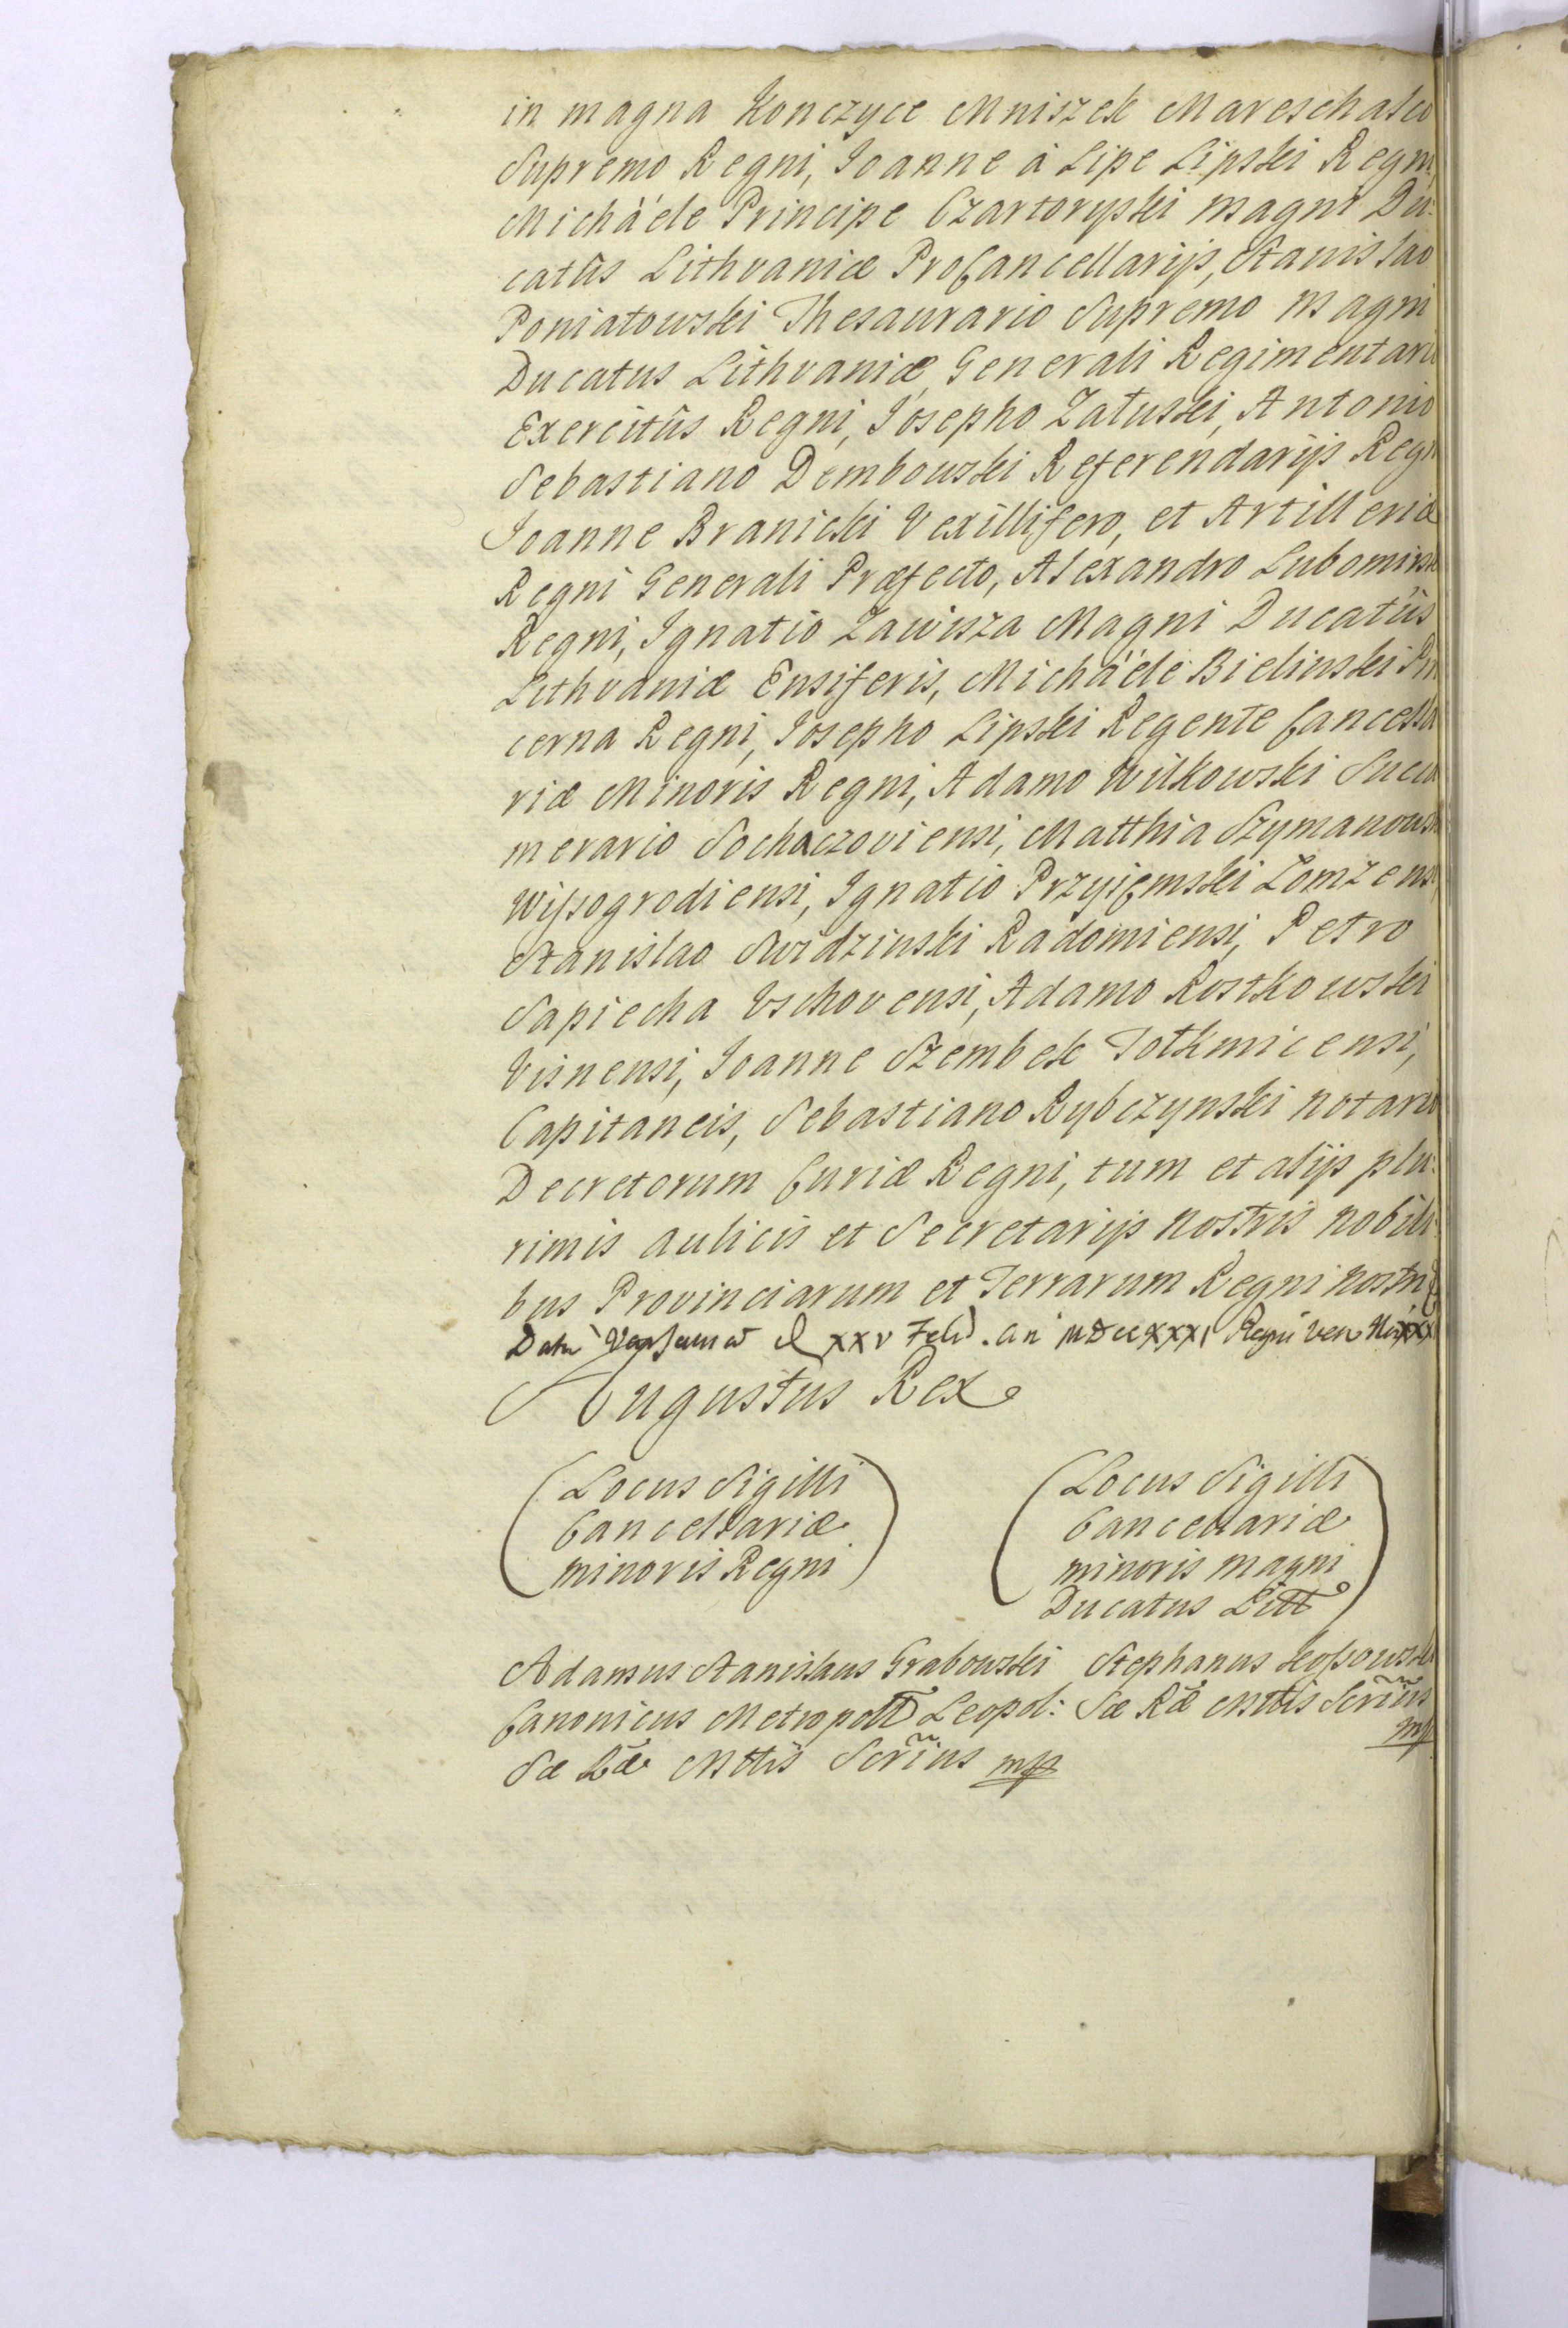 in magna Konczyce Mniszek Mareschalco
Supremo Regni, Joanne à Lipe Lipski Regni,
Michäéle Principe Czartoryski Magni Du:
catûs Lithvaniæ Procancellarijs, Stanislao
Poniatowski Thesaurario Supremo Magni
Ducatus Lithvaniæ, Generali Regimentario
Exercitûs Regni, Josepho Załuski, Antonio
Sebastiano Dembowski Referendarijs Regn
Joanne Branicki Vexillifero, et Artilleriæ
Regni Generali Præfecto, Alexandro Lubomirsk
Regni, Ignatio Zawisza Magni Ducatûs
Lithvaniæ Ensiferis, Michäéle Bielinski Pin
cerna Regni, Josepho Lipski Regente Cancella
riæ Minoris Regni, Adamo Witkowski Succa
merario Sochaczoviensi, Matthia Szymanowsk
Wyssogrodiensi, Ignatio Przyjemski Lomzens,
Stanislao Swidzinski Radomiensi, Petro
Sapiecha Vschovensi, Adamo Rostkowski
Visnensi, Joanne Szembek Tolkmicensi,
Capitaneis, Sebastiano Rybczynski notario
Decretorum Curiæ Regni, tum et alijs plu:
rimis aulicis et Secretarijs nostris nobili
bus Provinciarum et Terrarum Regni nostri
Datu Varsaviæ d xxv Feb. An MDCCXXXI Regni vero
Augustus Rex
(Locus Sigilli
Cancellariæ
minoris Regni)
(Locus Sigilli
Cancellariæ
minoris Magni
Ducatus Litt)
Adamus Stanislaus Grabowski
Canonicus Metropolt Leopol:
Sæ Ræ Mttis Scrius mp
Stephanus
Sæ Ræ Mttis Scrius
mp